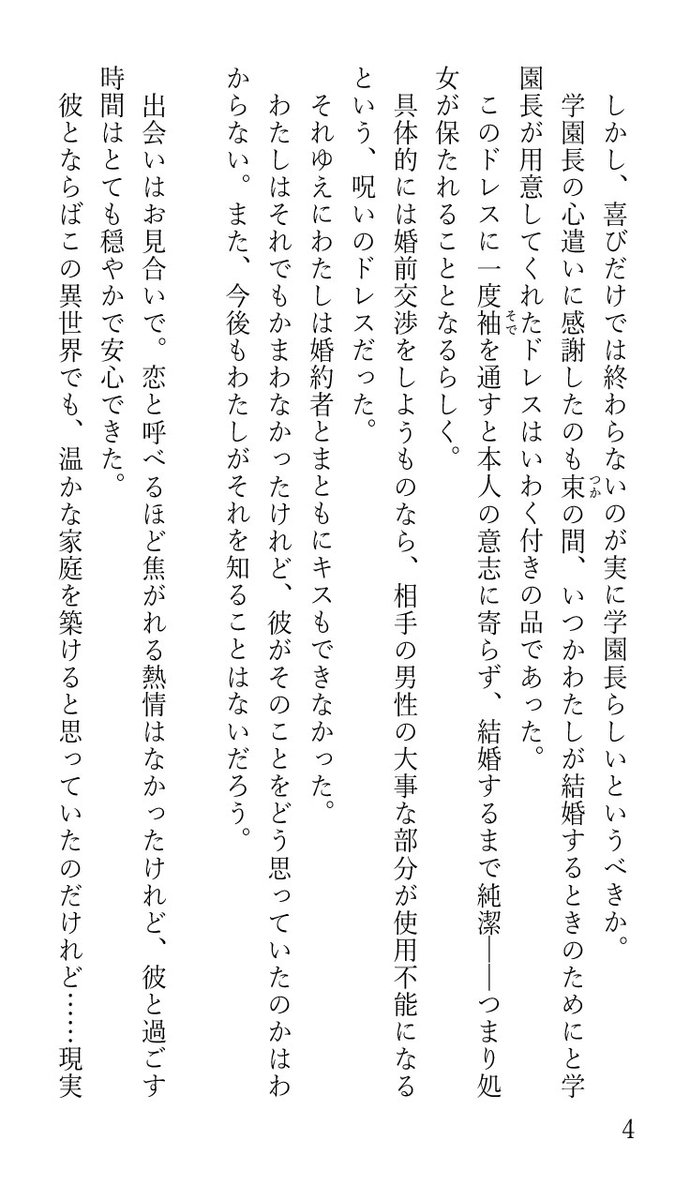 しかし、喜びだけでは終わらないのが実に学園長らしいというべきか。
学園長の心遣いに感謝したのも束の間、いつかわたしが結婚するときのためにと学
つか
園長が用意してくれたドレスはいわく付きの品であった。
このドレスに一度袖を通すと本人の意志に寄らず、結婚するまで純潔――つまり処
そで
女が保たれることとなるらしく。
具体的には婚前交渉をしようものなら、相手の男性の大事な部分が使用不能になる
という、呪いのドレスだった。
それゆえにわたしは婚約者とまともにキスもできなかった。
わたしはそれでもかまわなかったけれど、彼がそのことをどう思っていたのかはわ
からない。また、今後もわたしがそれを知ることはないだろう。
出会いはお見合いで。恋と呼べるほど焦がれる熱情はなかったけれど、彼と過ごす
時間はとても穏やかで安心できた。
彼とならばこの異世界でも、温かな家庭を築けると思っていたのだけれど……現実
4